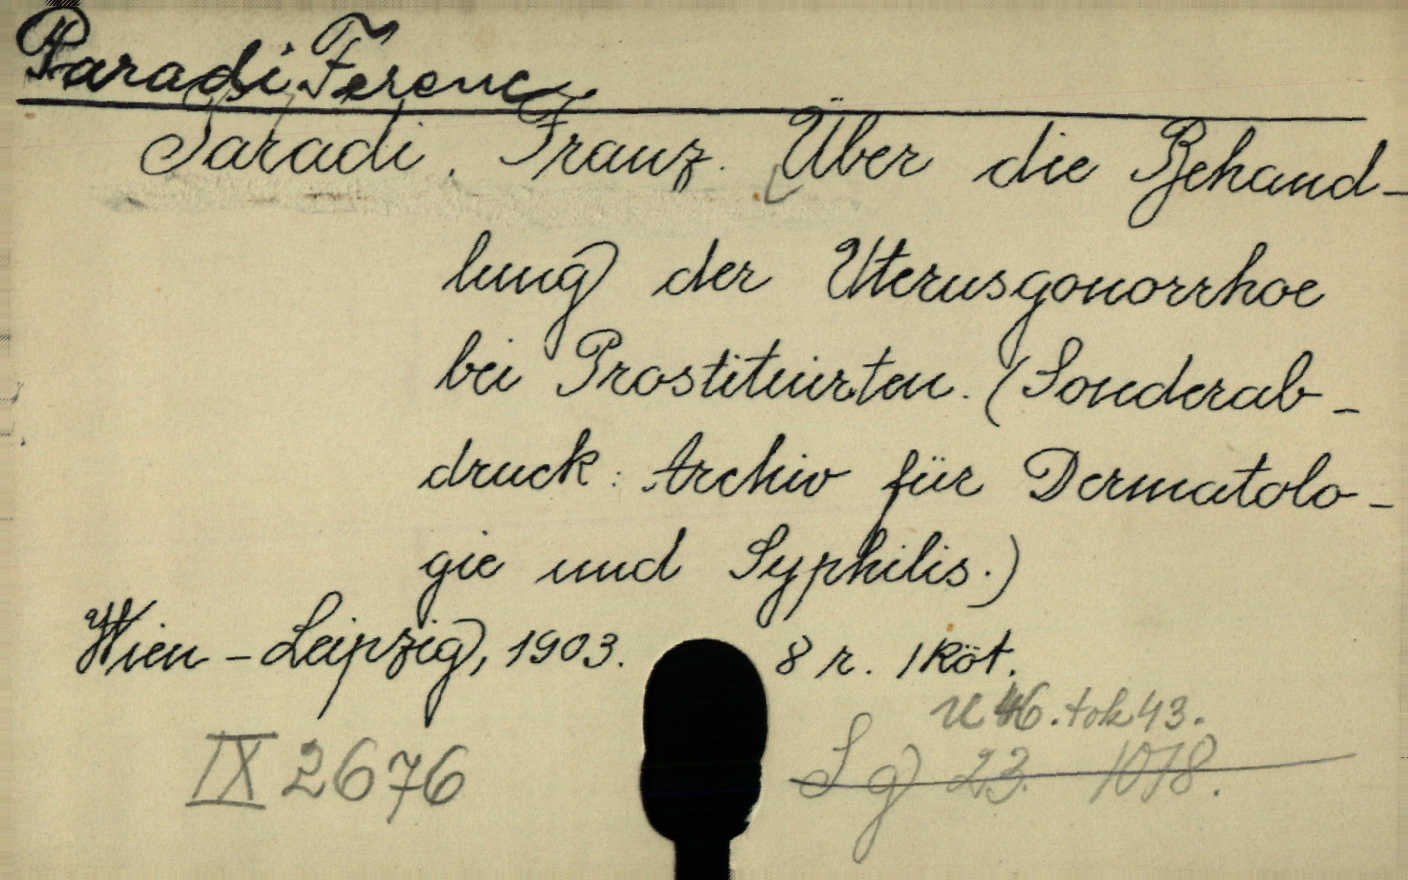 Paradi Ferenc
Paradi, Franz. Über die Behand-
lung der Uterusgonorrhoe
bei Prostituirten. (Sonderab-
druck: Archiv für Dermatolo-
gie und Syphilis.)
Wien-Leipzig, 1903. 8 r. 1 Köt.
46. tok 43.
IX 2676
Sg 23. 1018.